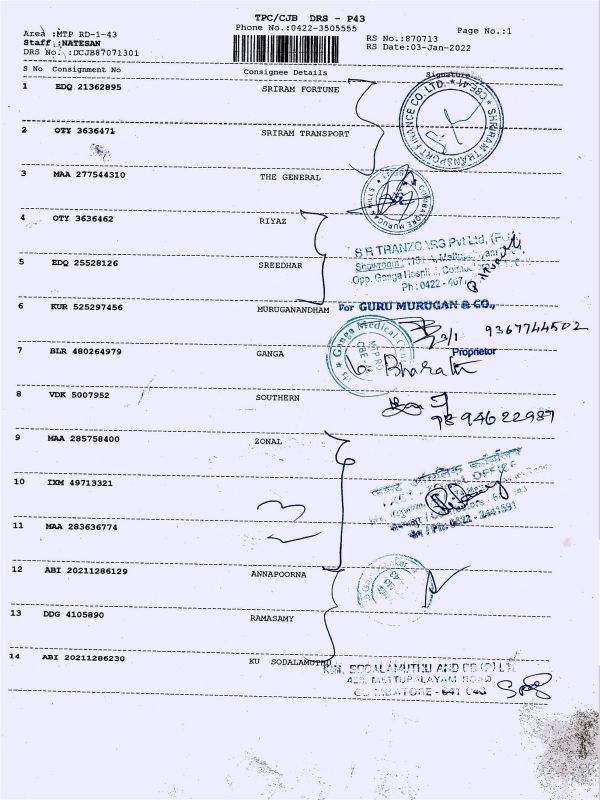 TPC/CJB DRS - P43
Phone No.:0422-3505555
Page No.:1
Area :MTP RD-1-43
RS No.:870713
Staff :NATESAN
RS Date:03-Jan-2022
DRS No. :DCJB87071301
S No Consignment No Consignee Details Signature
1 EDQ 21362895 SRIRAM FORTUNE
SHRIRAM TRANSPORT FINANCE CO. LTD. * CBE-41 *
2 OTY 3636471 SRIRAM TRANSPORT
3 MAA 277544310 THE GENERAL
COIMBATORE MURUGAN MILLS
4 OTY 3636462 RIYAZ
S R TRANZCARS Pvt Ltd,
5 EDQ 25528126 SREEDHAR
Opp. Ganga Hospital, Coimbatore
Ph : 0422 - 407
6 KUR 525297456 MURUGANANDHAM
For GURU MURUGAN & CO.,
3/1 9367744502
Proprietor
7 BLR 480264979 GANGA
Ganga Medical
MTP RD
CBE
Bharath
8 VDK 5007952 SOUTHERN
9894622987
9 MAA 285758400 ZONAL
10 IXM 49713321
11 MAA 283636774
3
Ph: 0422 - 2441691
12 ABI 20211286129 ANNAPOORNA
13 DDG 4105890 RAMASAMY
14 ABI 20211286230 KU SODALAMUTHU
SODALAMUTHU AND CO (P) LTD
METTUPALAYAM ROAD
COIMBATORE - 641 043